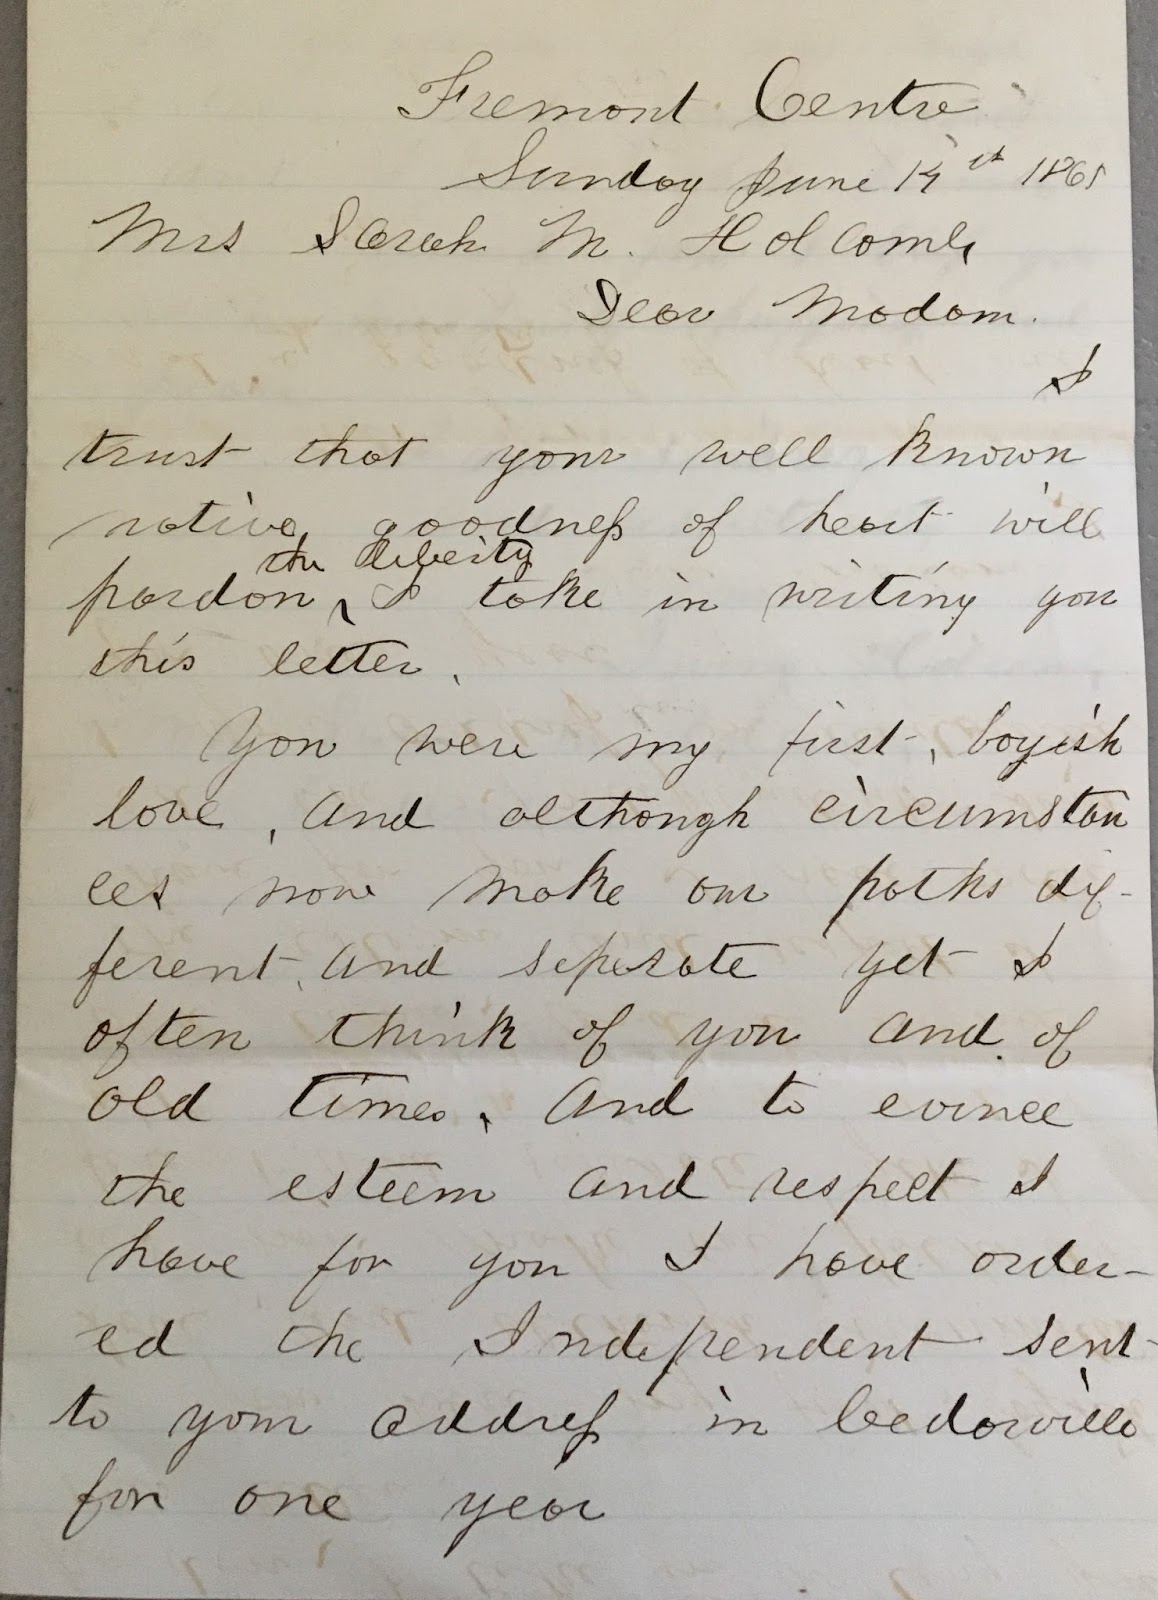 Fremont Centre
Sunday June 14th 1865
Mrs Sarah M. Holcomb,
Dear Madam.
I
trust that your well known
native goodness of heart will
the liberty
pardon ^ I take in writing you
this letter.
You were my first, boyish
love, and although circumstan
ces now make our paths dif-
ferent, and seperate yet I
often think of you and of
old times, and to evince
the esteem and respect I
have for you I have order-
ed the Independent sent
to your address in Cedarville
for one year